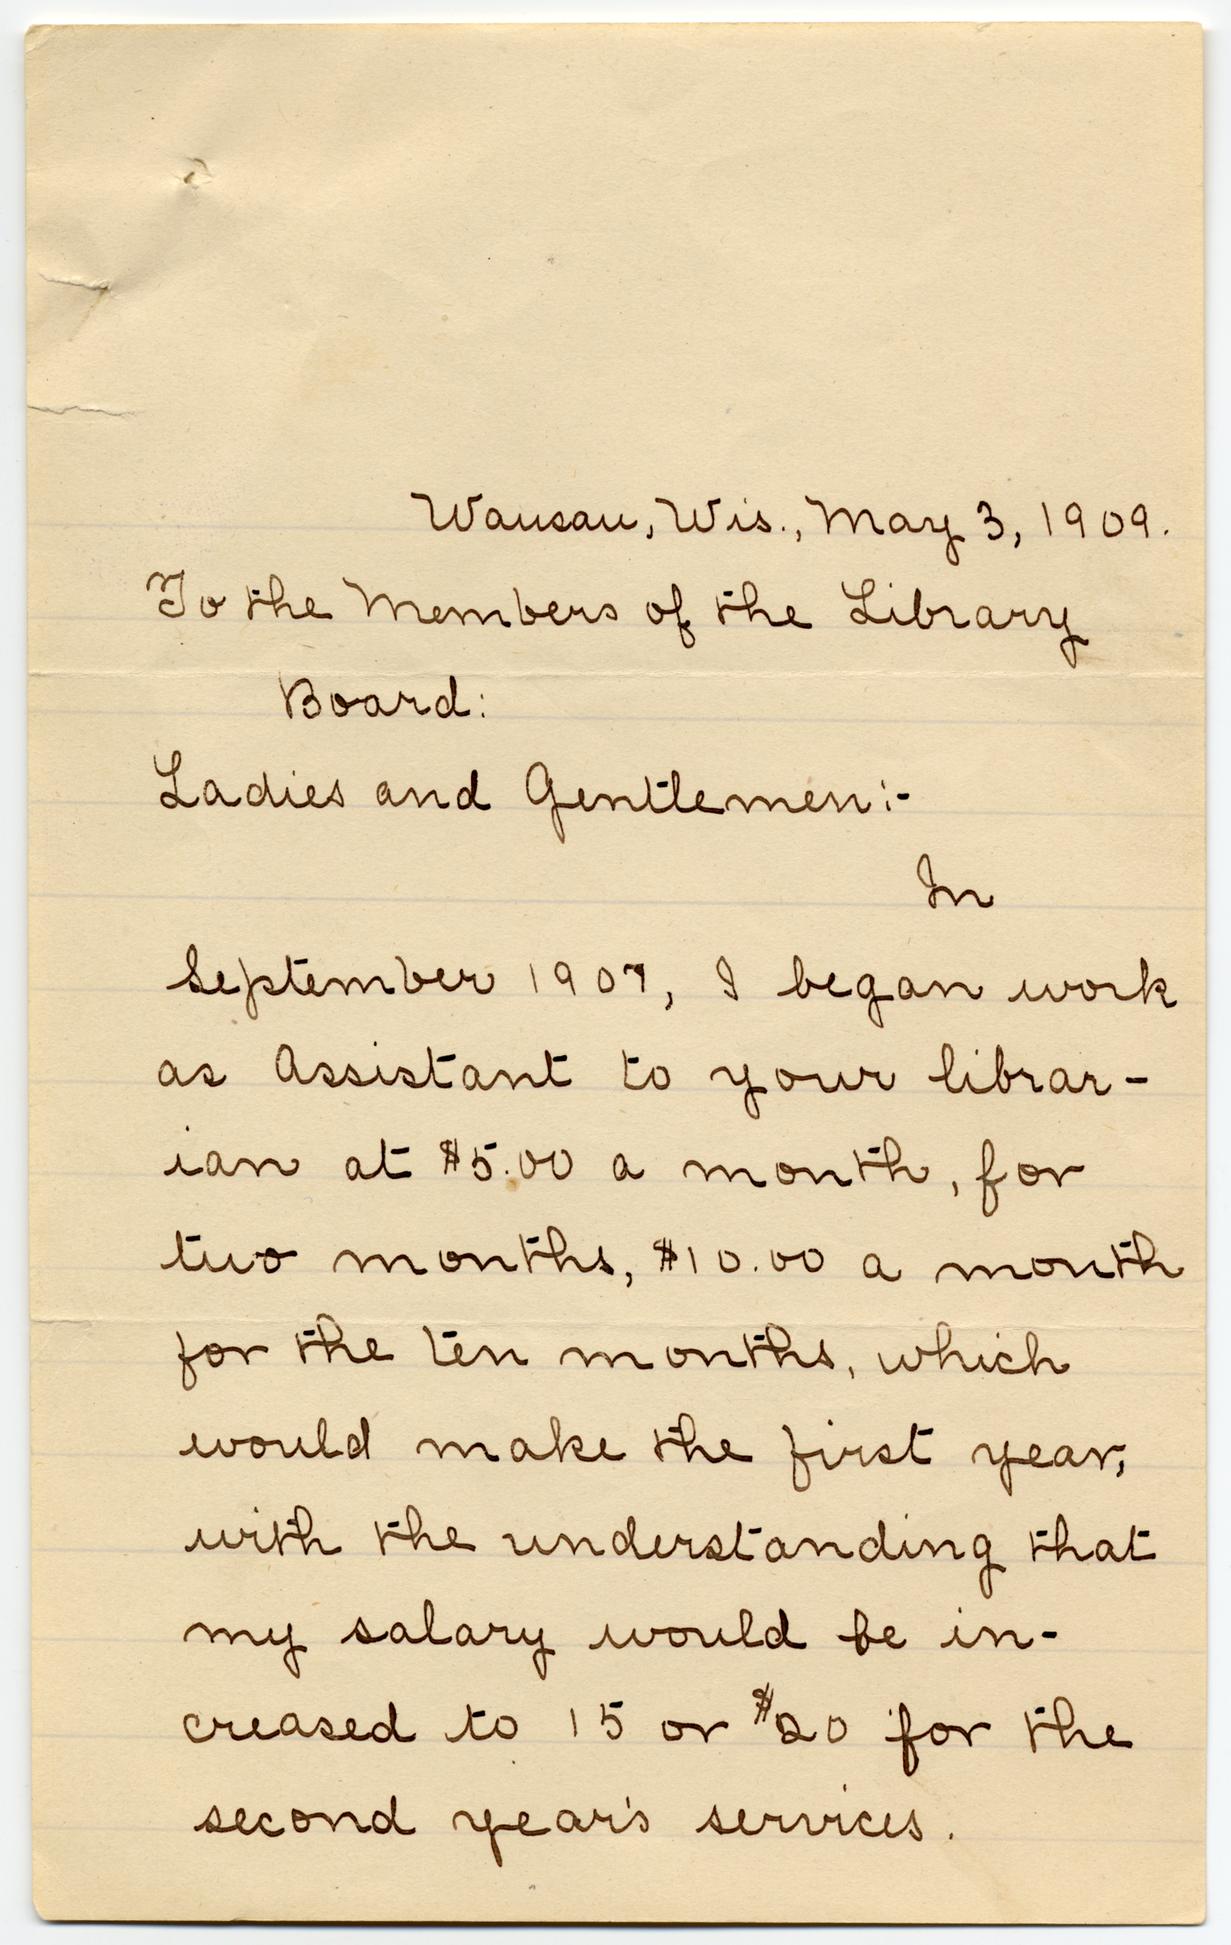 Wausau, Wis., May 3, 1909.
To the Members of the Library
Board:
Ladies and Gentlemen:-
In
September 1907, I began work
as Assistant to your librar-
ian at $5.00 a month, for
two months, $10.00 a month
for the ten months, which
would make the first year,
with the understanding that
my salary would be in-
creased to 15 or $20 for the
second year's services.